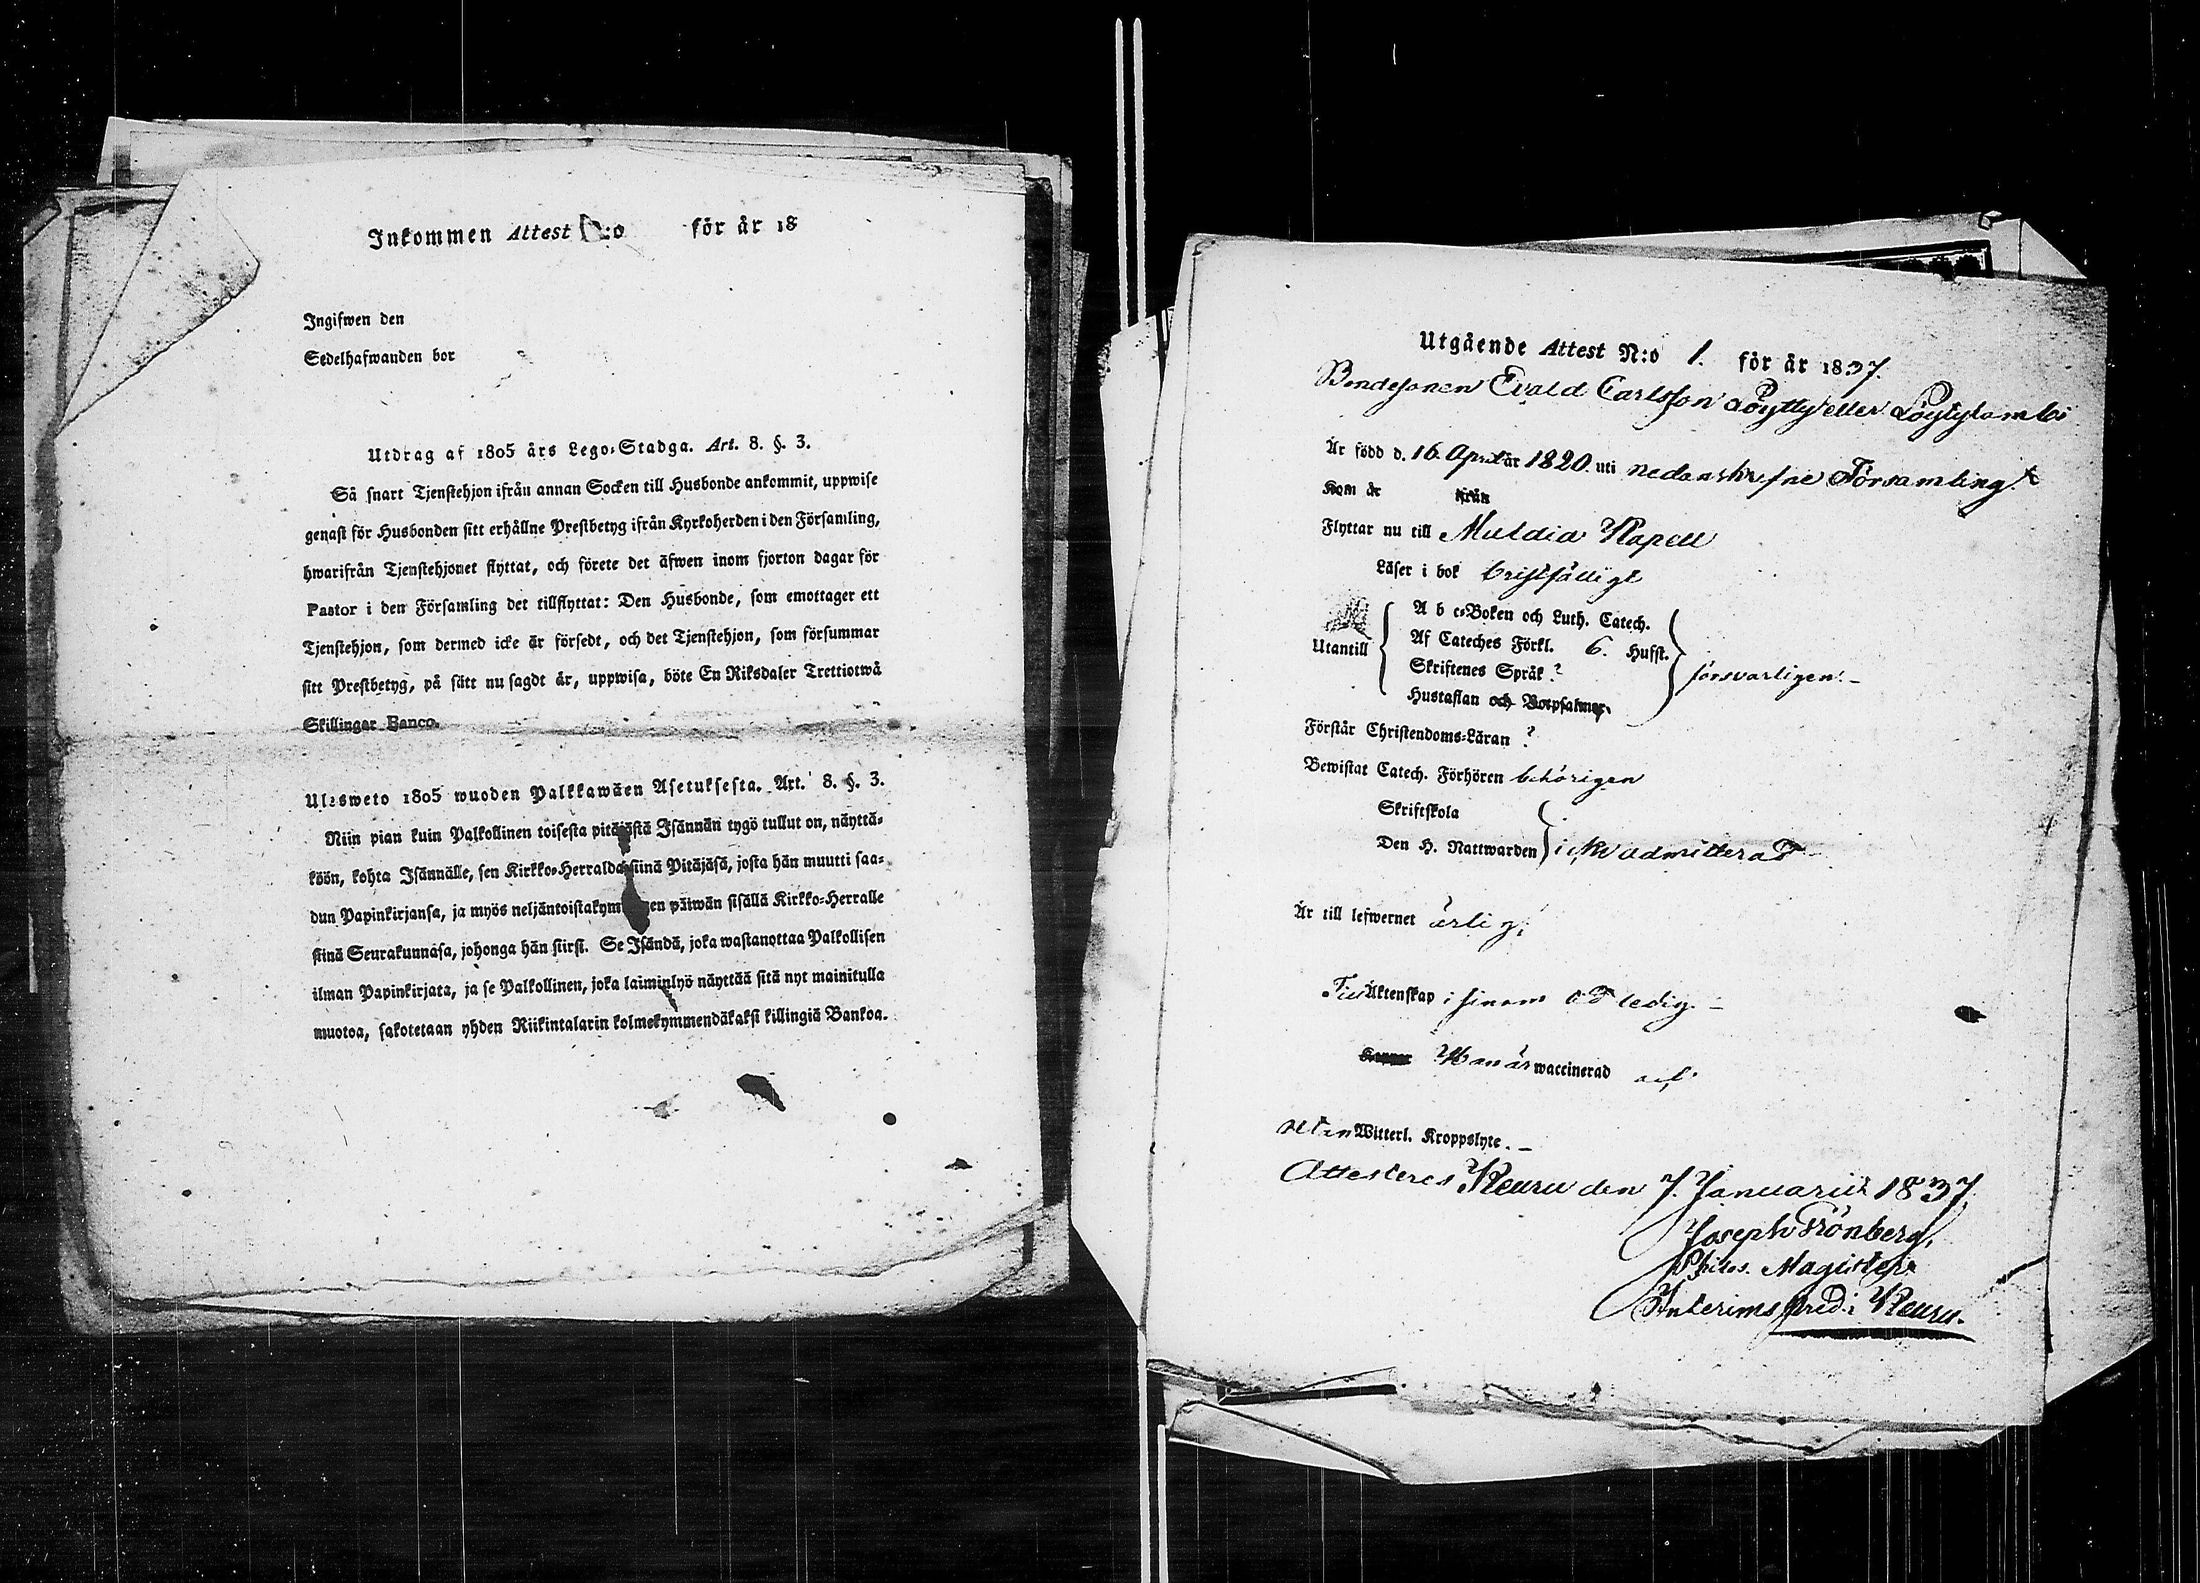 Inkommen Attest N:o för år 18
Ingifwen den
Sedelhafwanden bor
Utdrag af 1805 års Lego-Stadga. Art. 8. §. 3.
Så snart Tjenstehjon ifrån annan Socken till Husbonde ankommit, uppwise
genast för Husbonden sitt erhållne Prestbetyg ifrån Kyrkoherden i den Församling,
hwarifrån Tjenstehjonet flyttat, och förete det äfwen inom fjorton dagar för
Pastor i den Församling det tillflyttat: Den Husbonde, som emottager ett
Tjenstehjon, som dermed icke är försedt, och det Tjenstehjon, som försummar
sitt Prestbetyg, på sätt nu sagdt är, uppwisa, böte En Riksdaler Trettiotwå
Skillingar Banco.
Ulosweto 1805 wuoden Palkkawäen Asetuksesta. Art. 8. §. 3.
Niin pian kuin Palkollinen toisesta pitäjästä Isännän tygö tullut on, näyttä-
köön, kohta Isännälle, sen Kirkko-Herralda siinä Pitäjäsä, josta hän muutti saa-
dun Papinkirjansa, ja myös neljäntoistakymmenen päiwän sisällä Kirkko-Herralle
siinä Seurakunnasa, johonga hän siirsi. Se Isändä, joka wastanottaa Palkollisen
ilman Papinkirjata, ja se Palkollinen, joka laiminlyö näyttää sitä nyt mainitulla
muotoa, sakotetaan yhden Riikintalarin kolmekymmendäkaksi killingiä Bankoa.
Utgående Attest N:o 1. för år 1837.
Bondesonen Evald Carlsson Löytty eller Löytylambi
Är född d. 16. April år 1820. uti nedanskrefne Församling.
Kom år ifrån
Flyttar nu till Muldia Kapell
Läser i bok bristfälligt
A b c-Boken och Luth. Catech.
Af Cateches Förkl. 6. Hufst.
Utantill försvarligen.-
Skriftenes Språk ?
Hustaflan och Botpsalmer
Förstår Christendoms-Läran ?
Bewistat Catech. Förhören behörigen
Skriftskola
Den H. Nattwarden icke admitterad
Är till lefwernet ärlig,
Till Äktenskap i sinom tid ledig. -
Han är waccinerad och
utan Witterl. Kroppslyte. -
Attesteres Keuru den 7. Januarii 1837.
Joseph Frönberg,
Philos. Magister
Interims pred. i Keuru.